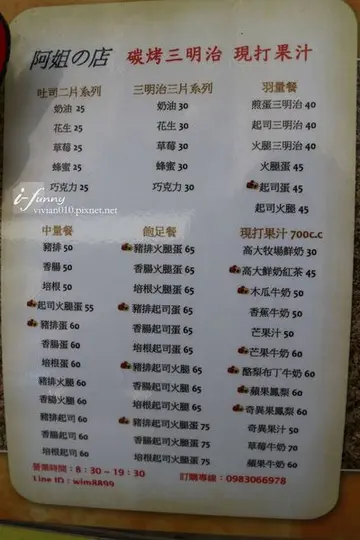 阿姐の店 碳烤三明治 現打果汁
吐司二片系列
奶油 25
花生 25
草莓 25
蜂蜜 25
巧克力 25
三明治三片系列
奶油 30
花生 30
草莓 30
蜂蜜 30
巧克力 30
羽量餐
煎蛋三明治 40
起司三明治 40
火腿三明治 40
火腿蛋 45
起司蛋 45
起司火腿 45
i-funny
vivian010.pixnet.net
中量餐
豬排 50
香腸 50
培根 50
起司火腿蛋 55
豬排蛋 60
香腸蛋 60
培根蛋 60
豬排火腿 60
香腸火腿 60
豬排起司 60
香腸起司 60
培根起司 60
飽足餐
豬排火腿蛋 65
香腸火腿蛋 65
培根火腿蛋 65
豬排起司蛋 65
香腸起司蛋 65
培根起司蛋 65
豬排起司火腿 65
香腸起司火腿 65
培根起司火腿 65
豬排起司火腿蛋 75
香腸起司火腿蛋 75
培根起司火腿蛋 75
現打果汁 700c.c
高大牧場鮮奶 30
高大鮮奶紅茶 45
木瓜牛奶 50
香蕉牛奶 50
芒果汁 50
芒果牛奶 60
酪梨布丁牛奶 60
蘋果鳳梨 60
奇異果鳳梨 60
奇異果汁 50
草莓牛奶 70
蘋果牛奶 60
營業時間:8:30-19:30
訂購專線:0983066978
Line ID:wim8899